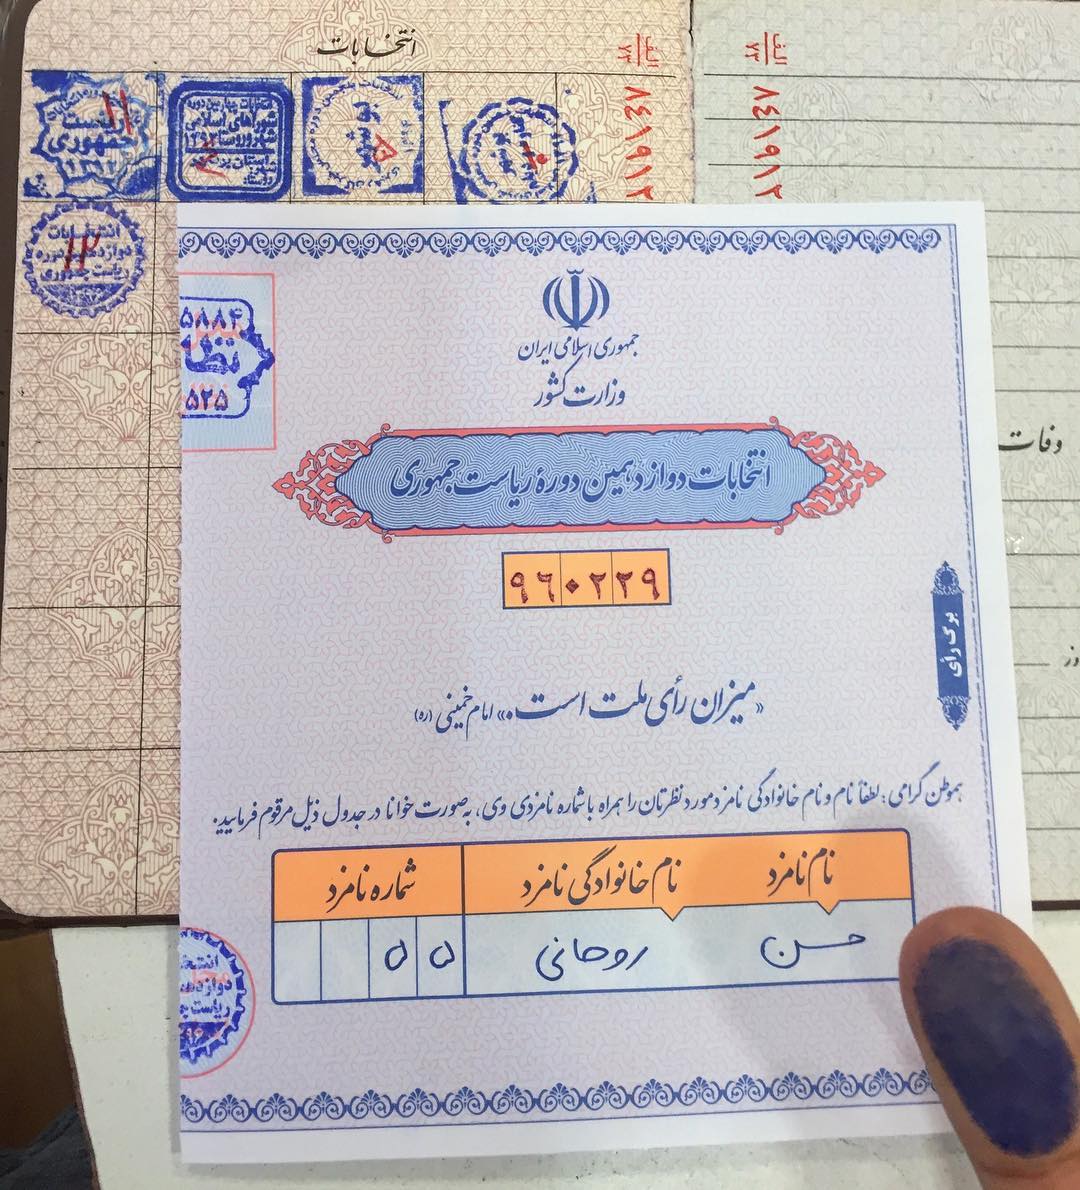 انتخابات
الف
۲۲
۸۴۱۹۱۲
الف
۲۲
۸۴۱۹۱۲
۱۱
ریاست
جمهوری
۱۳۹۲
انتخابات چهارمین دوره
شوراهای اسلامی
شهر و روستا ۱۳۹۲
انتخابات
دوازدهمین دوره
ریاست جمهوری
۱۲
وفات
۵۸۸۴
۵۲۵
جمهوری اسلامی ایران
وزارت کشور
انتخابات دوازدهمین دورهٔ ریاست جمهوری
۹۶۰۲۲۹
«میزان رأی ملت است.» امام خمینی (ره)
برگ رأی
هموطن گرامی: لطفاً نام و نام خانوادگی نامزد مورد نظرتان را همراه با شماره نامزدی وی، به‌صورت خوانا در جدول ذیل مرقوم فرمایید.
نام نامزد نام خانوادگی نامزد شماره نامزد
حسن روحانی ۵۵
انتخ
دوازده
ریاست ج